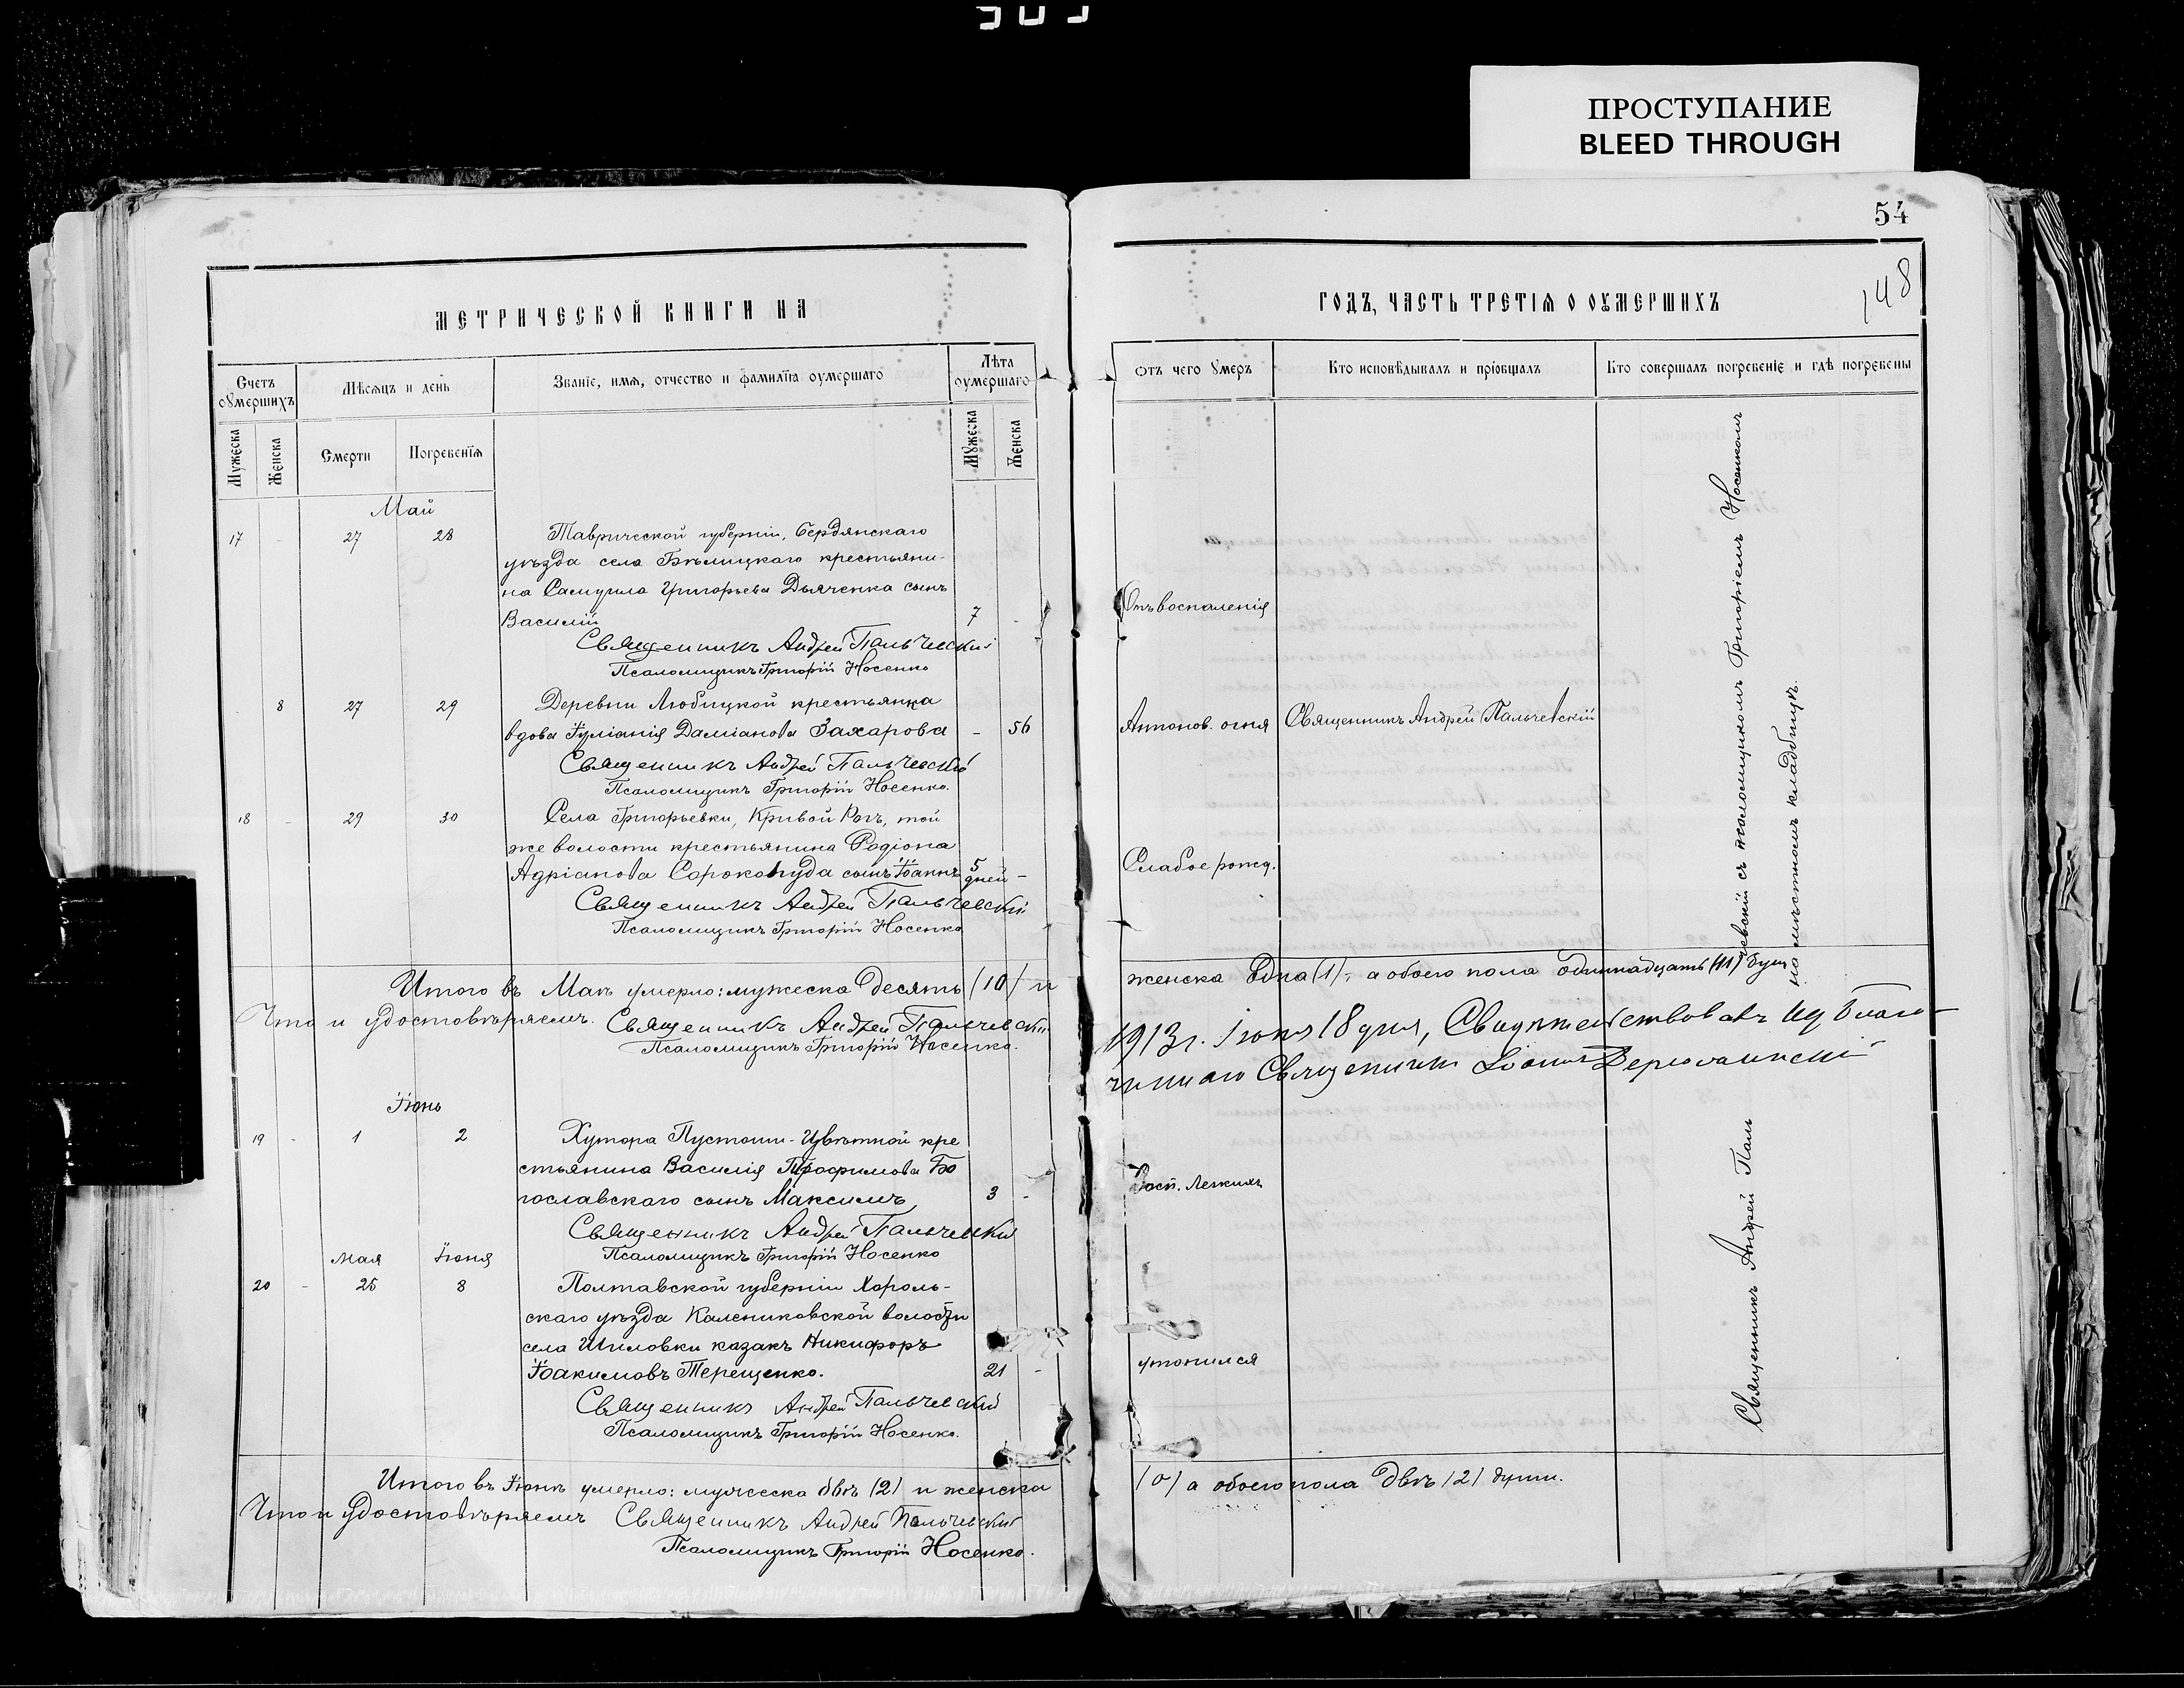 ПРОСТУПАНИЕ
BLEED THROUGH
54
148
МЕТРИЧЕСКОЙ КНИГИ НА
Счетъ оумершихъ
Мѣсяцъ и день
Званіе, имя, отчество и фамилія оумершаго
Лѣта оумершаго
Мужеска
Женска
Смерти
Погребенія
Мужеска
Женска
Май
17 - 27 28 Таврической губерніи, Бердянскаго
уѣзда села Бѣлицкаго крестьяни-
на Самуила Григорьева Дьяченка сынъ
Василій 7 -
Священникъ Андрей Пальчевскій
Псаломщикъ Григорій Носенко
- 8 27 29 Деревни Любицкой крестьянка
вдова Іуліанія Даміанова Захарова - 56
Священникъ Андрей Пальчевскій
Псаломщикъ Григорій Носенко.
18 - 29 30 Села Григорьевки, Кривой Рогъ, той
же волости крестьянина Родіона
Адріанова Сорокопуда сынъ Іоаннъ 5 дней -
Священникъ Андрей Пальчевскій
Псаломщикъ Григорій Носенко
Итого въ Маѣ умерло: мужеска десять (10) и
Что и удостовѣряемъ. Священникъ Андрей Пальчевскій
Псаломщикъ Григорій Носенко.
Іюнь
19 - 1 2 Хутора Пустоши-Цвѣтной кре
стьянина Василія Трофимова Бо
гославскаго сынъ Максимъ 3 -
Священникъ Андрей Пальчевскій
Псаломщикъ Григорій Носенко
мая Іюня
20 - 25 8 Полтавской губерніи Хороль-
скаго уѣзда Калениковской волости
села Шиловки казакъ Никифоръ
Іоакимовъ Терещенко. 21 -
Священникъ Андрей Пальчевскій
Псаломщикъ Григорій Носенко.
Итого въ Іюнѣ умерло: мужеска двѣ (2) и женска
Что и удостовѣряемъ Священникъ Андрей Пальчевскій
Псаломщикъ Григорій Носенко.
ГОДЪ, ЧАСТЬ ТРЕТІЯ О ОУМЕРШИХЪ
Отъ чего умеръ
Кто исповѣдывалъ и пріобщалъ
Кто совершалъ погребеніе и гдѣ погребены
Отъ воспаленія
Антонов. огня Священникъ Андрей Пальчевскій
Слабое рожд.
женска одна (1), а обоего пола одиннадцать (11) душ
1913 г. Іюня 18 дня, Свидѣтельствовалъ Благо-
чиннаго Священникъ Іоаннъ
Восп. Легкихъ
утопился
Священникъ Андрей Паль
чевскій съ псаломщикомъ Григоріемъ Носенкомъ
на мѣстномъ кладбищѣ.
(0) а обоего пола двѣ (2) души.